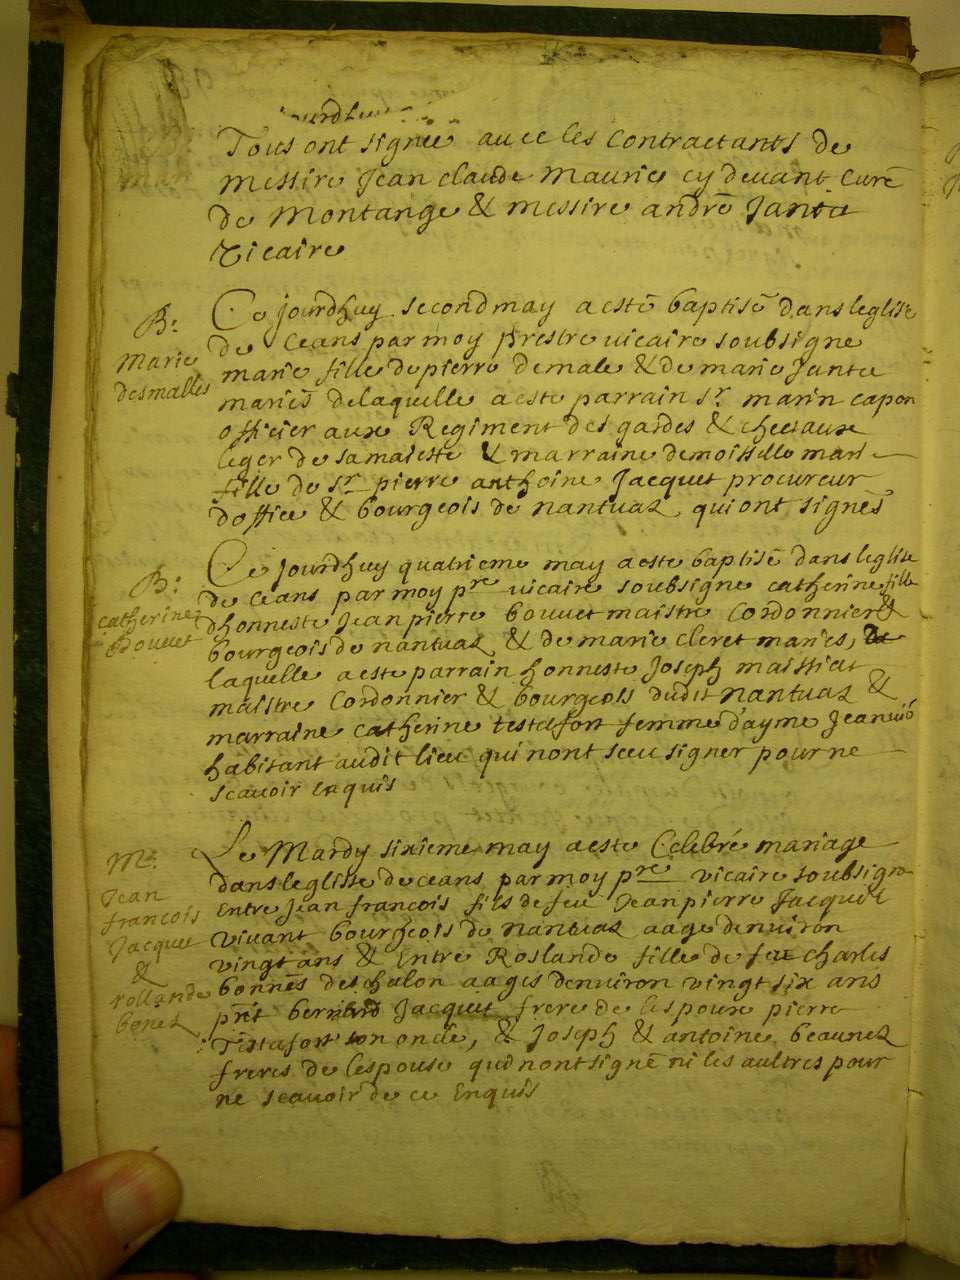 jourdhuy
Tous ont signée avec les Contractants de
messire Jean claude Maurice cy devant Curé
de Montange & messire andré Jantet
Vicaire
B:
Marie
desmalles
Ce jourdhuy second may a esté baptisé dans leglise
de Ceans par moy prestre vicaire soubsigne
marie fille de pierre demale & de marie Jantet
mariés de laquelle a este parrain Sr marin capon
officier aux Regiment des gardes & chevaux
leger de sa maieste & marraine demoiselle mari
fille de Sr pierre anthoine Jacquet procureur
doffice & bourgeois de nantuaz qui ont signés
B:
catherine
Bouvet
Ce Jourdhuy quatrieme may a este baptisé dans leglise
de Ceans par moy pre vicaire soubsigne catherine fille
dhonneste Jean pierre bouvet maistre Cordonnier &
bourgeois de nantuaz & de marie cleret maries, de
laquelle a este parrain honneste Joseph maissiat
maistre Cordonnier & bourgeois dudit nantuaz &
marraine catherine testafort femme dayme
habitant audit lieu qui nont sceu signer pour ne
scavoir enquis
M:
Jean
francois
Jacquet
&
rollande
bonez
Le Mardy sixieme may a este Celebré mariage
dans leglise de ceans par moy pre vicaire soubsigne
Entre Jean francois fils de feu Jean pierre Jacquet
vivant bourgeois de nantuaz aage denviron
vingt ans & Entre Roslande fille de feu charles
bonnés de chalon aages denviron vingt six ans
pnt bernard Jacquet frere de lespoux pierre
Testafort son oncle, & Joseph & antoine beaunez
freres de lespouse qui nont signé ni les aultres pour
ne scavoir de ce Enquis